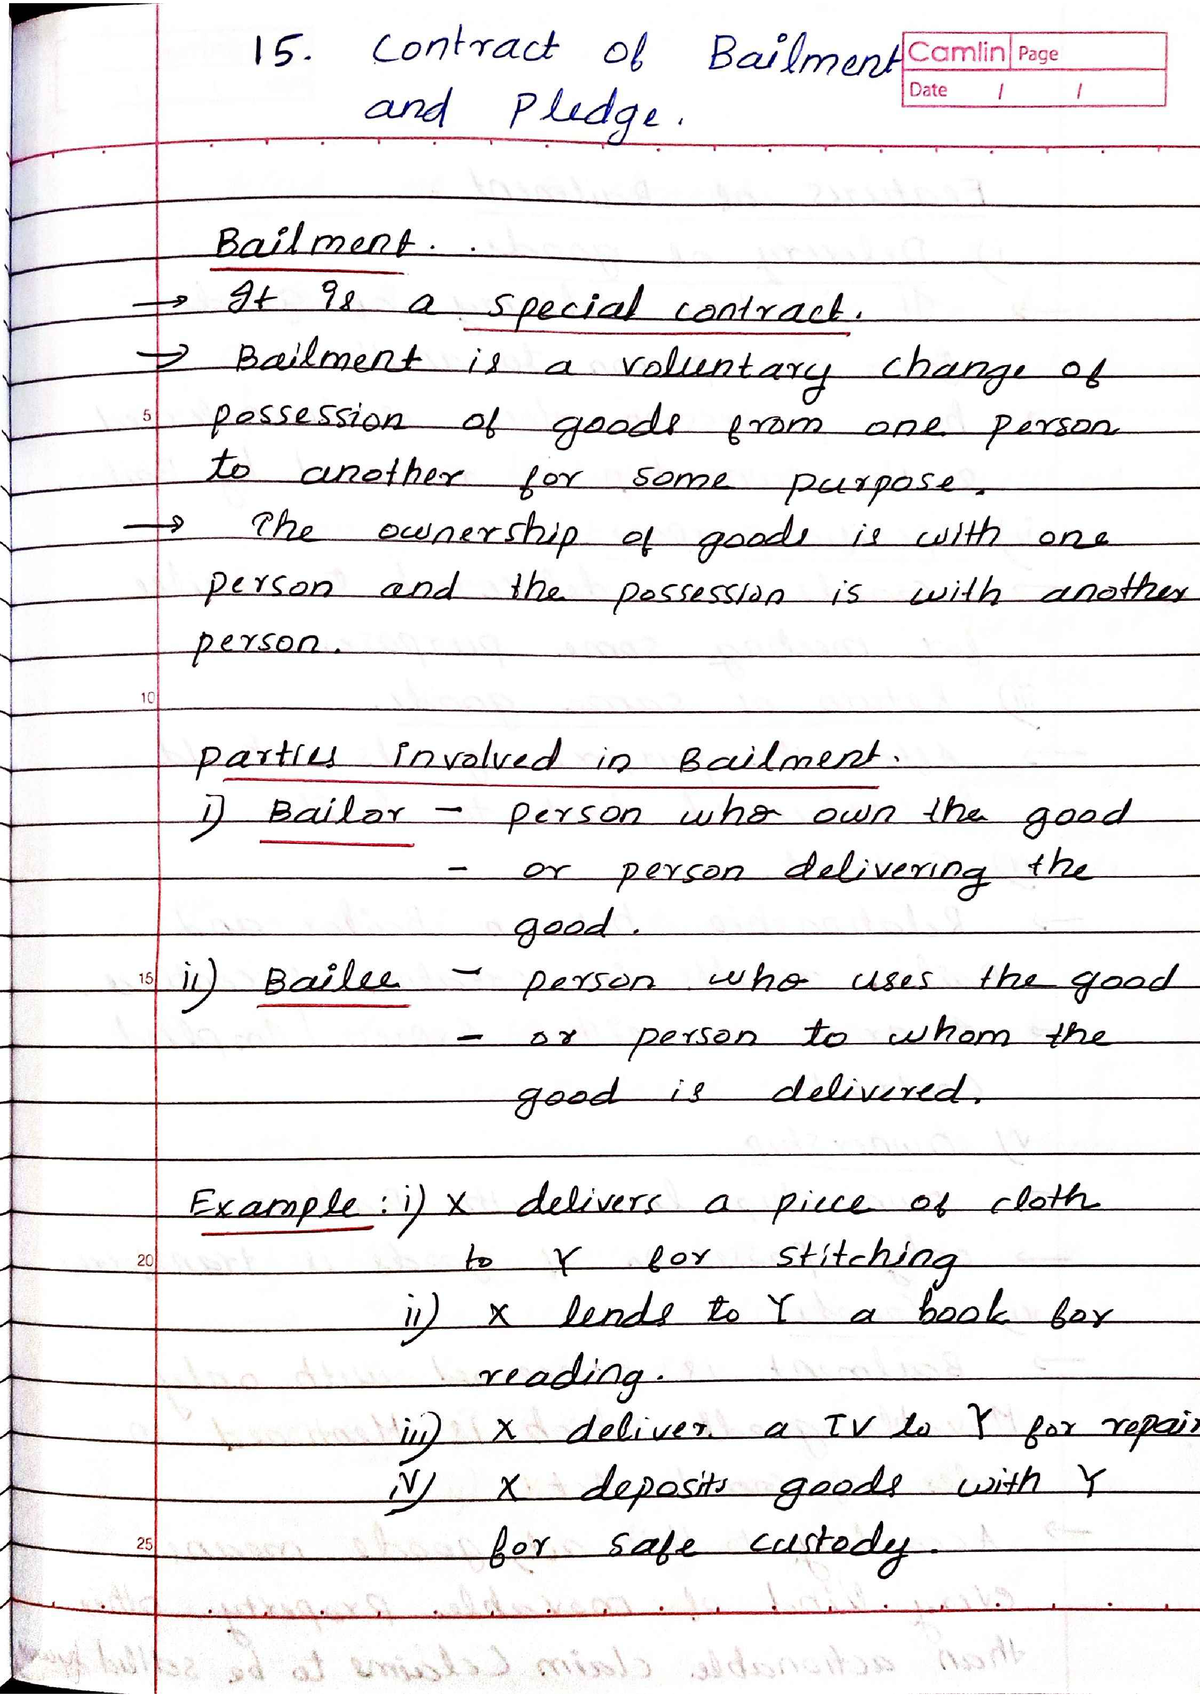 15. Contract of Bailment
and Pledge.
Camlin Page
Date / /
Bailment.
→ It is a special contract.
→ Bailment is a voluntary change of
5 possession of goods from one person
to another for some purpose.
→ The ownership of goods is with one
person and the possession is with another
person.
10
parties involved in Bailment.
i) Bailor - person who own the good
- or person delivering the
good.
15 ii) Bailee - person who uses the good
- or person to whom the
good is delivered.
Example : i) X delivers a piece of cloth
20 to Y for stitching
ii) X lends to Y a book for
reading.
iii) X deliver a TV to Y for repair
iv) X deposits goods with Y
25 for safe custody.